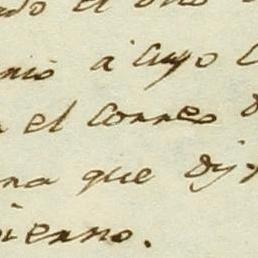 ado el
nio a cuyo
el Correo
na que dij
ierno.